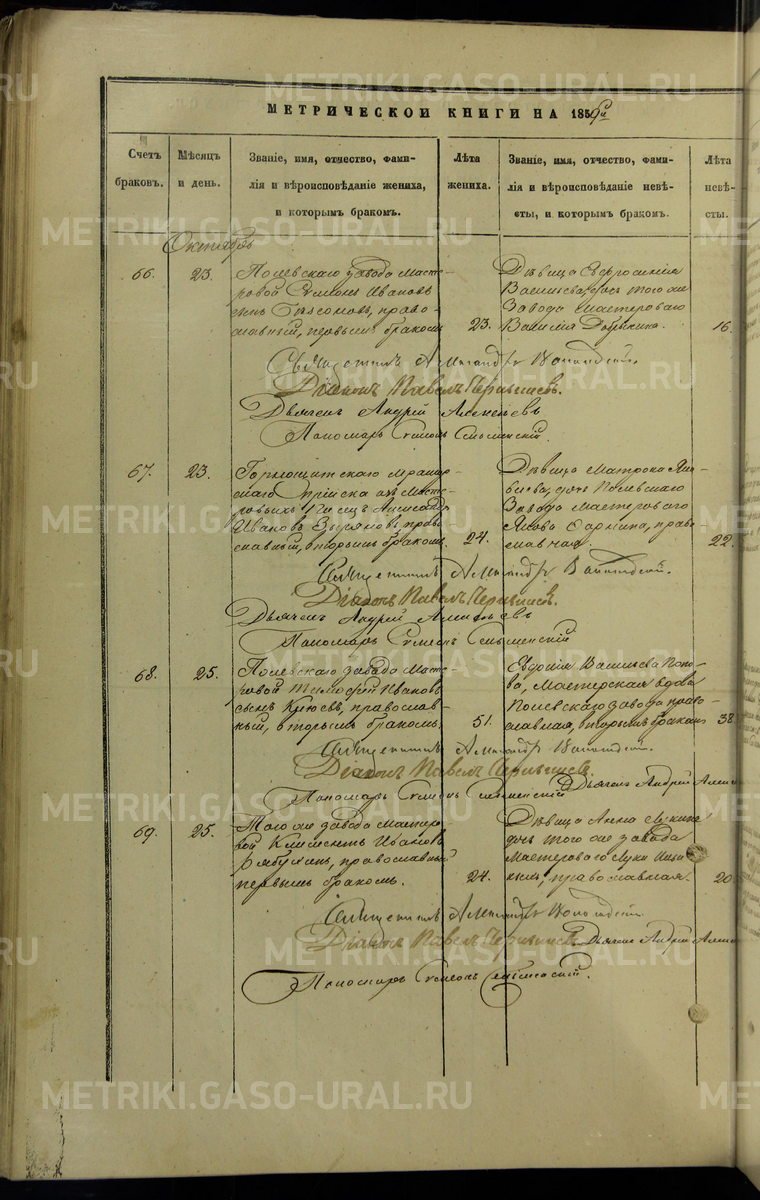 МЕТРИЧЕСКОЙ КНИГИ НА 1856й
Счетъ браковъ.
Мѣсяцъ и день.
Званіе, имя, отчество, фами-
лія и вѣроисповѣданіе жениха,
и которымъ бракомъ.
Лѣта жениха.
Званіе, имя, отчество, фами-
лія и вѣроисповѣданіе невѣ-
сты, и которымъ бракомъ.
Лѣта невѣ-
сты.
Октябрь
66. 23.
Полевскаго завода Масте-
ровой Симеонъ Ивановъ
сынъ православный, первымъ бракомъ
23.
Дѣвица Евфросинія
Васильева, дочь того же
Завода Мастероваго
Василія Добрынина.
16.
Священникъ Александръ
Діаконъ Павелъ Чернышевъ.
Дьячекъ Андрій Алексѣевъ
Пономарь Симеонъ Смоленскій
67. 23.
Горнощитскаго Мрамор-
скаго Пріиска изъ Масте-
ровыхъ Александръ
Ивановъ Зыряновъ, право-
славный, вторымъ бракомъ.
24.
Дѣвица Матрона Яко-
влева, дочь Полевскаго
Завода Мастероваго
Якова право-
славная.
22.
Священникъ Александръ
Діаконъ Павелъ Чернышевъ.
Дьячекъ Андрій Алексѣевъ
Пономарь Симеонъ Смоленскій
68. 25.
Полевскаго завода Масте-
ровой Тимофей Ивановъ
сынъ православ-
ный, вторымъ бракомъ.
51.
Евдокія Васильева Попо-
ва, Мастерская вдова
Полевскаго завода право-
славная, вторымъ бракомъ
38
Священникъ Александръ
Діаконъ Павелъ Чернышевъ.
Дьячекъ Андрій
Пономарь Симеонъ Смоленскій
69. 25.
Того же завода Мастеро-
вой Климентъ Ивановъ
православный
первымъ бракомъ.
24.
Дѣвица Анна Лукина
дочь того же завода
Мастероваго Луки
православная.
20
Священникъ Александръ
Діаконъ Павелъ Чернышевъ
Дьячекъ Андрій
Пономарь Симеонъ Смоленскій.
METRIKI.GASO-URAL.RU